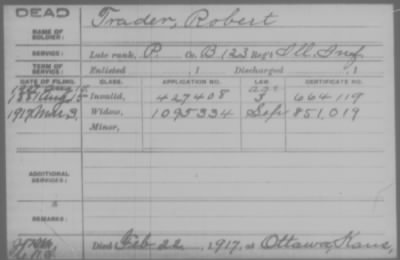 DEAD
NAME OF SOLDIER: Trader, Robert
SERVICE: Late rank, P. Co. B 123 Reg't Ill. Inf.
TERM OF SERVICE: Enlisted , 1 Discharged , 1
DATE OF FILING. CLASS. APPLICATION NO. LAW. CERTIFICATE NO.
1881 Aug 15 Invalid, 427408 664119
1917 Mar 3, Widow, 1095334 851,019
Minor,
ADDITIONAL SERVICES:
REMARKS:
Died Feb 22, 1917, at Ottawa, Kans,